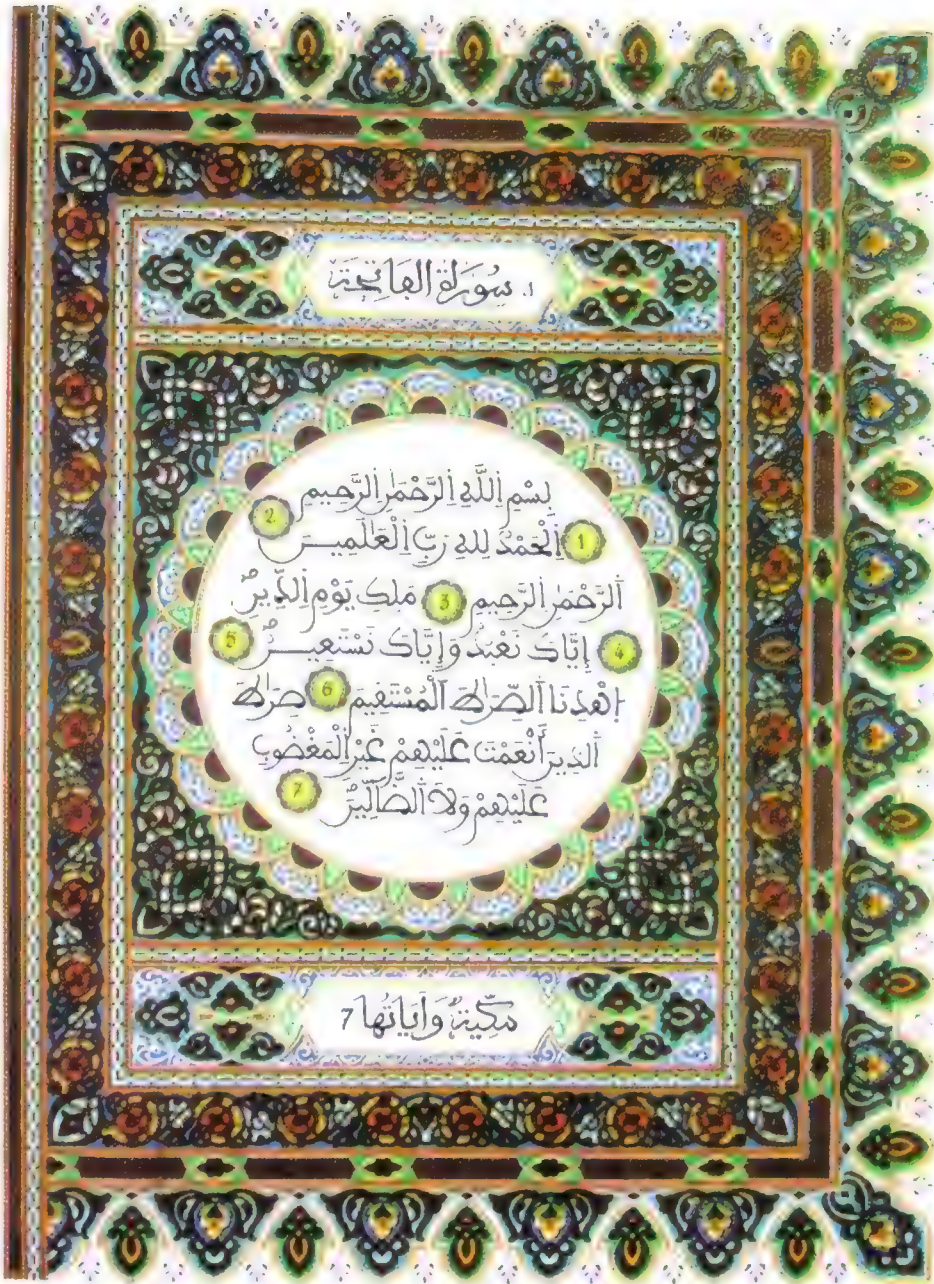 1. سُورَةُ الفَاتِحَة
بِسْمِ اِللَّهِ اِلرَّحْمَٰنِ اِلرَّحِيمِ
1 اِلْحَمْدُ لِلهِ رَبِّ اِلْعَٰلَمِينَ 2
اَلرَّحْمَٰنِ اِلرَّحِيمِ 3 مَلِكِ يَوْمِ اِلدِّينِ
4 إِيَّاكَ نَعْبُدُ وَإِيَّاكَ نَسْتَعِينُ 5
اِهْدِنَا اَلصِّرَٰطَ اَلْمُسْتَقِيمَ 6 صِرَٰطَ
اَلذِينَ أَنْعَمْتَ عَلَيْهِمْ غَيْرِ اِلْمَغْضُوبِ
عَلَيْهِمْ وَلَا اَلضَّآلِّينَ 7
مَكِّيَّة وَآيَاتُهَا 7